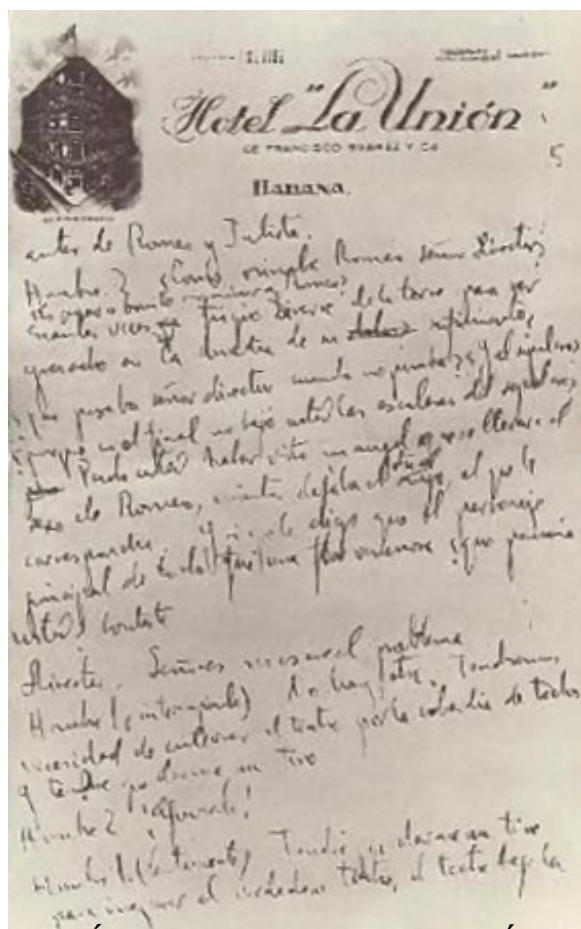 Hotel "La Unión"
DE FRANCISCO SUAREZ Y Cª
Habana.
5
autor de Romeo y Julieta.
Hombre 2 ¿Como orinaba Romeo señor Director?
¿No es bonito ver orinar a Romeo?
cuantas veces fingió tirarse de la torre para ser
apresado en la comedia de su sufrimiento?
¿que pasaba señor director cuando no pasaba? ¿y el sepulcro?
¿porque en el final no bajó usted las escaleras del sepulcro?
Pudo usted haber visto un angel que se llevaba el
sexo de Romeo, mientras dejaba el suyo, el que le
correspondia. Y si yo le digo que el personaje
principal de todo fue una flor venenosa ¿que pensaria
usted? conteste
Director. Señores no es ese el problema
Hombre 1 (interrumpiendo) No hay otro. Tendremos
necesidad de enterrar el teatro por la cobardia de todos
y tendré que darme un tiro
Hombre 2 !
Hombre 1 (lentamente) Tendré que darme un tiro
para inaugurar el verdadero teatro, el teatro bajo la